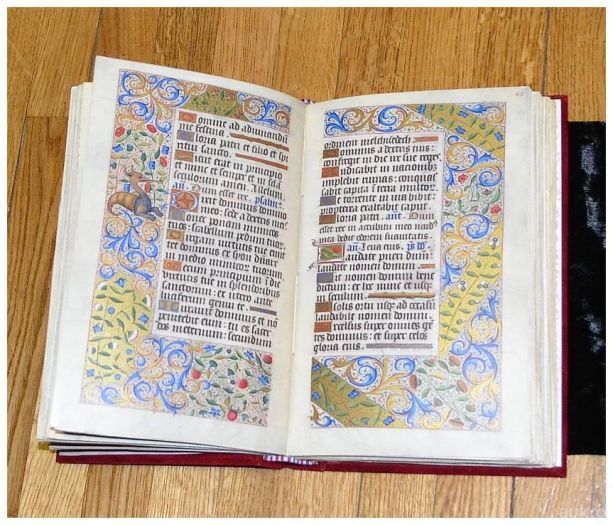 omine ad adiuuandū
me festina.
loria patri et filio et spi
ritui sancto.
icut erat in principio
et nunc et semper et in secula
seculorum amen. Alleluia.
añ. psalm
ixit dominus domino
meo: sede a dextris meis
onec ponam inimicos
tuos: scabellum pedum tuorū.
irgam uirtutis tue emit
tet dominus ex syon: dñare
in medio inimicorum tuorum.
ecum principium in die
uirtutis tue in splendoribus
sanctorum: ex utero ante
luciferum genui te.
urauit dominus et nō
penitebit eum: tu es sacer
dos in eternum: secundum
63
ordinem melchisedech.
ominus a dextris tuis:
confregit in die ire sue reges.
udicabit in nacionibus
implebit ruinas: conquas
sabit capita in terra multorū.
e torrente in uia bibit:
propterea exaltabit caput.
loria patri. añt. Dum
esset rex in accubitu meo nard
mea dedit odorem suauitatis.
añ. Leua eius. ps
audate pueri dūm:
laudate nomen domini.
it nomen domini bene
dictum: ex hoc nunc et usqz
in seculum.
solis ortu usqz ad occasū
laudabile nomen domini.
xcelsus super omnes gē
tes dominus: et super celos
gloria eius.